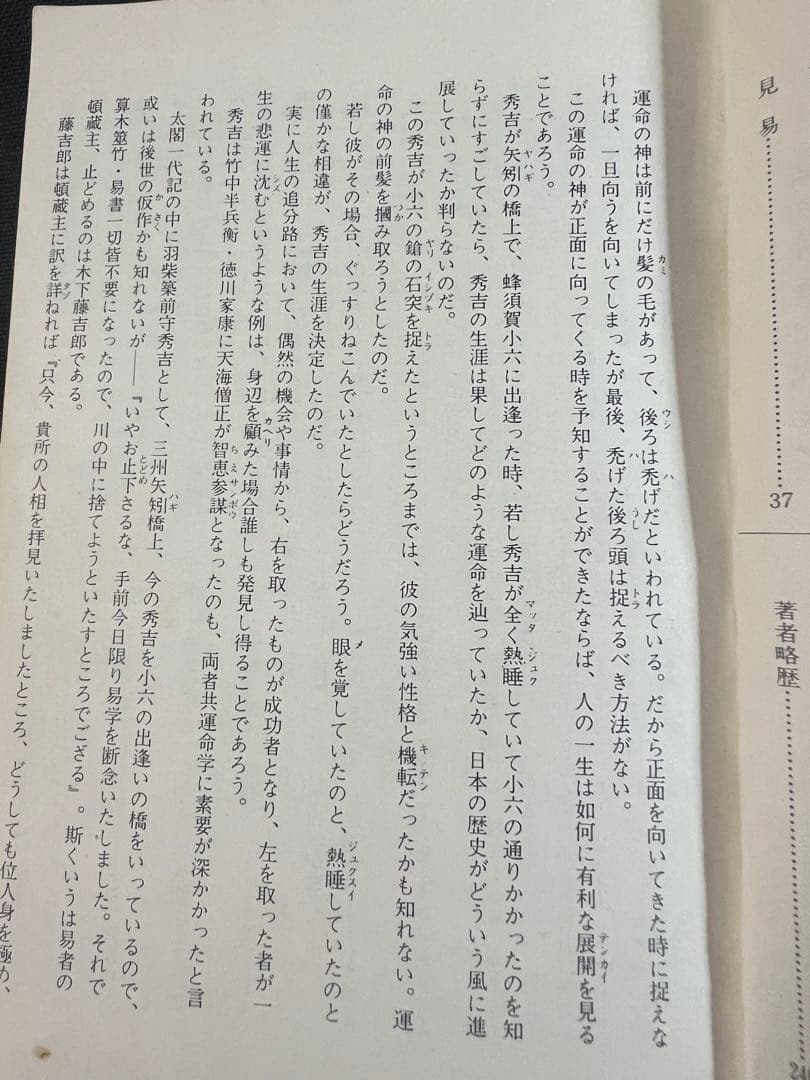 見易……………………37
著者略歴……………
運命の神は前にだけ髪の毛があって、後ろは禿げだといわれている。だから正面を向いてきた時に捉えな
ければ、一旦向うを向いてしまったが最後、禿げた後ろ頭は捉えるべき方法がない。
この運命の神が正面に向ってくる時を予知することができたならば、人の一生は如何に有利な展開を見る
ことであろう。
秀吉が矢矧の橋上で、蜂須賀小六に出逢った時、若し秀吉が全く熱睡していて小六の通りかかったのを知
らずにすごしていたら、秀吉の生涯は果してどのような運命を辿っていたか、日本の歴史がどういう風に進
展していったか判らないのだ。
この秀吉が小六の鎗の石突を捉えたというところまでは、彼の気強い性格と機転だったかも知れない。運
命の神の前髪を摑み取ろうとしたのだ。
若し彼がその場合、ぐっすりねこんでいたとしたらどうだろう。眼を覚していたのと、熱睡していたのと
の僅かな相違が、秀吉の生涯を決定したのだ。
実に人生の追分路において、偶然の機会や事情から、右を取ったものが成功者となり、左を取った者が一
生の悲運に沈むというような例は、身辺を顧みた場合誰しも発見し得ることであろう。
秀吉は竹中半兵衡・徳川家康に天海僧正が智恵参謀となったのも、両者共運命学に素要が深かかったと言
われている。
太閤一代記の中に羽柴築前守秀吉として、三州矢矧橋上、今の秀吉を小六の出逢いの橋をいっているので、
或いは後世の仮作かも知れないが――『いやお止下さるな、手前今日限り易学を断念いたしました。それで
算木筮竹・易書一切皆不要になったので、川の中に捨てようといたすところでござる』。斯くいうは易者の
頓蔵主、止どめるのは木下藤吉郎である。
藤吉郎は頓蔵主に訳を詳ねれば『只今、貴所の人相を拝見いたしましたところ、どうしても位人身を極め、